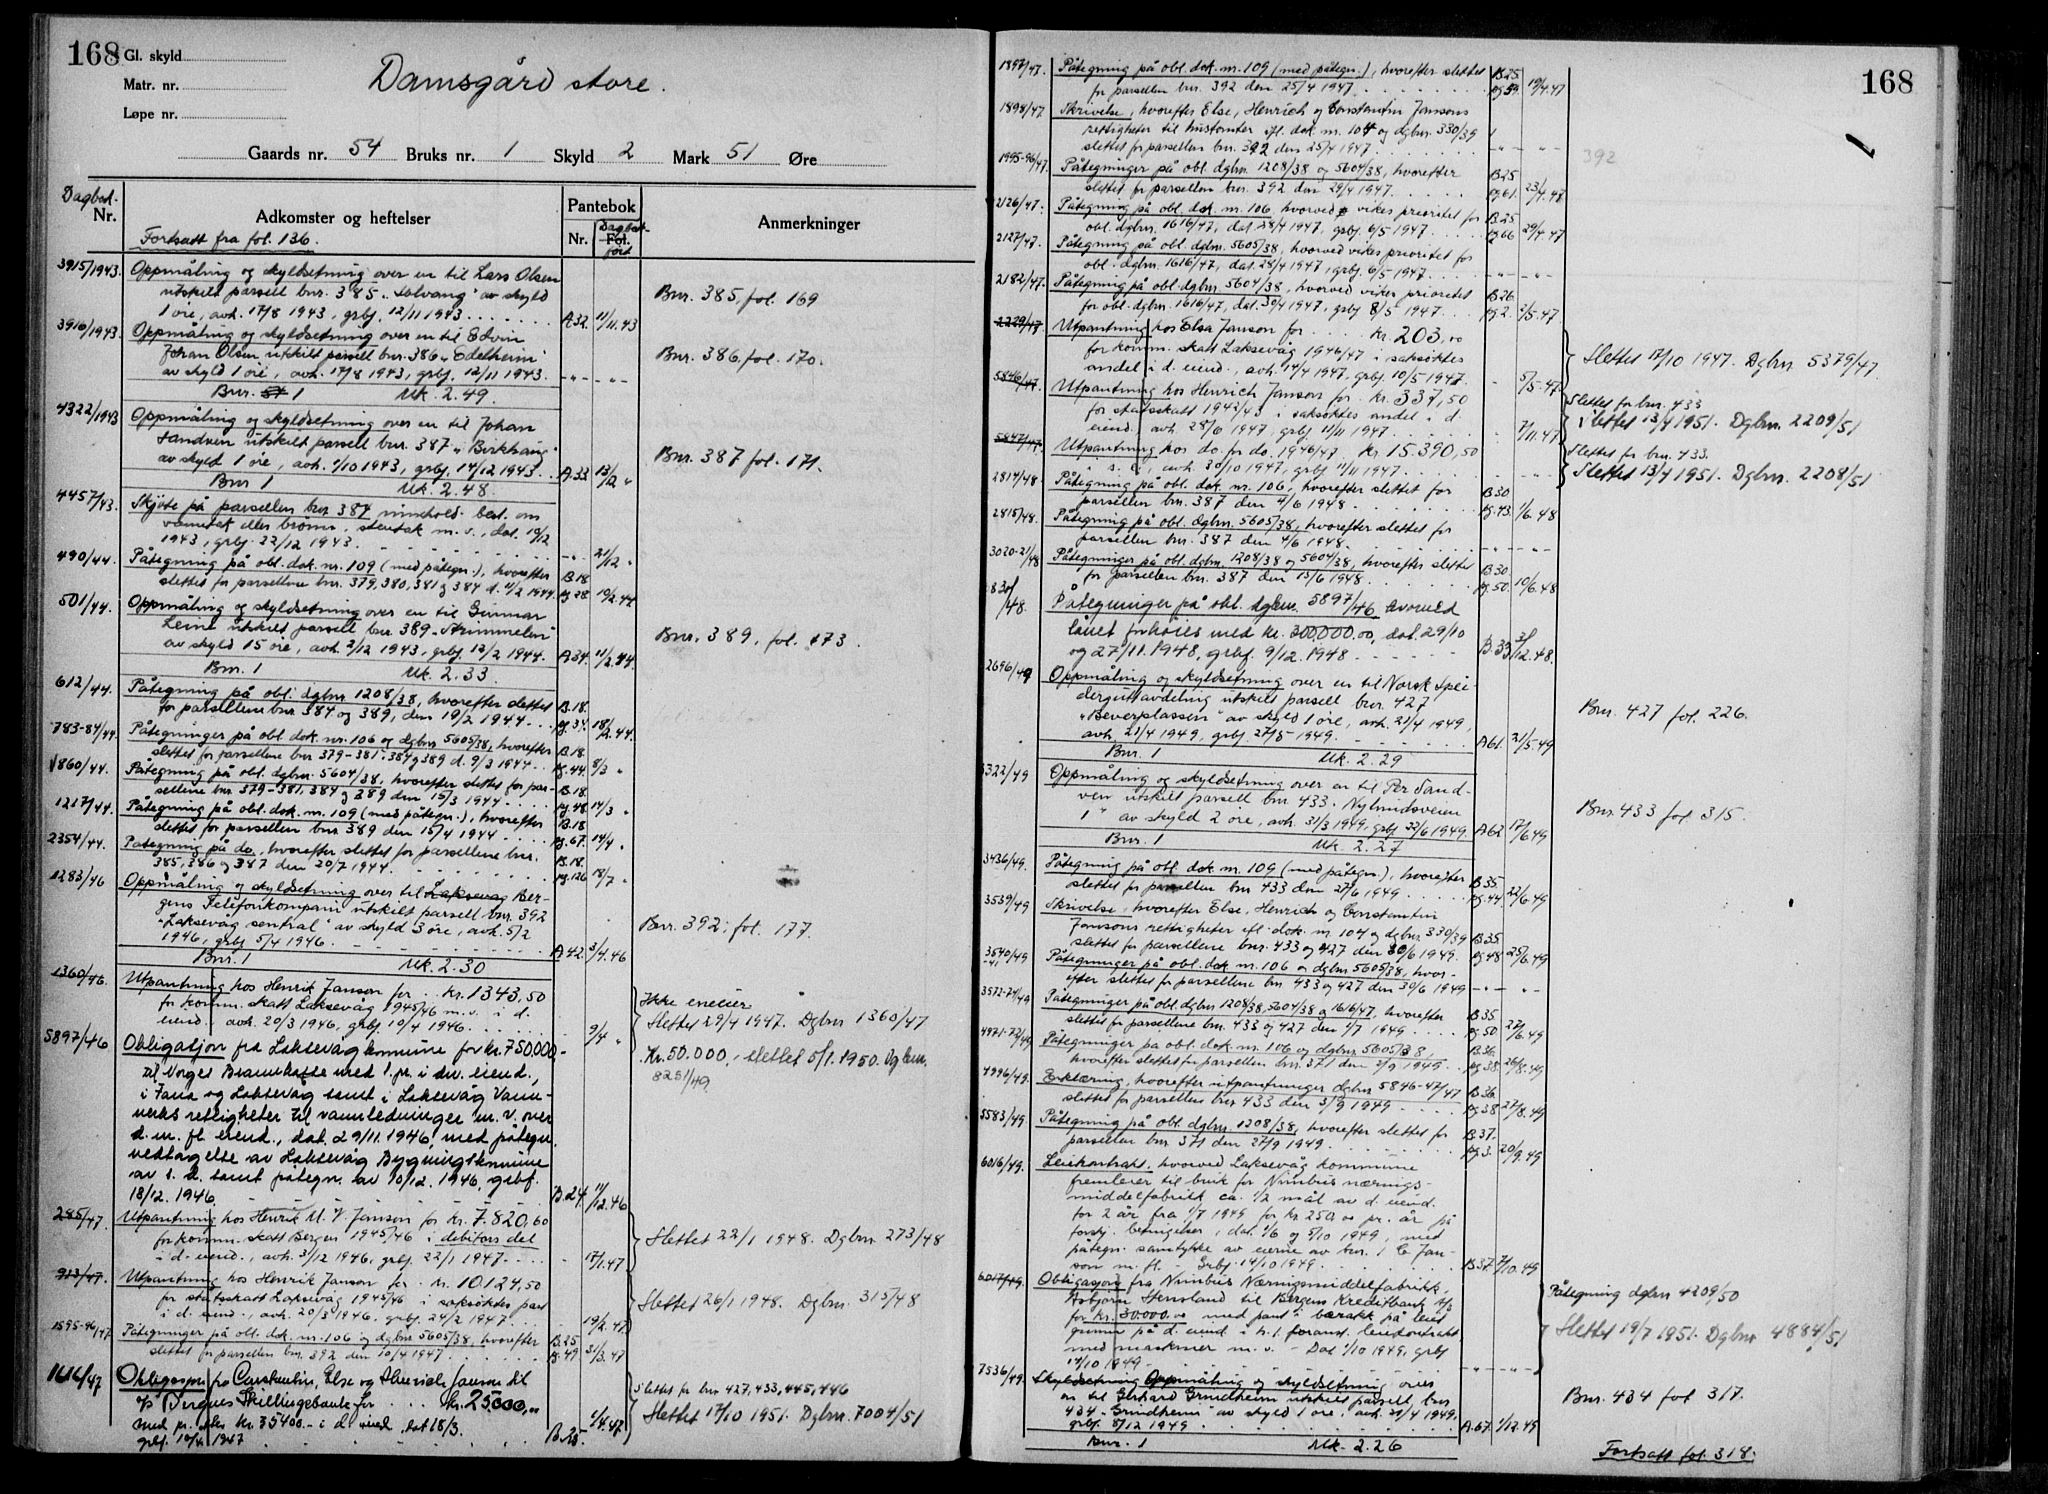 168
Gl. skyld
Matr. nr.
Løpe nr.
Damsgård store.
Gaards nr. 54 Bruks nr. 1 Skyld 2 Mark 51 Øre
Dagbok-
Nr.
Adkomster og heftelser
Pantebok
Nr.
Dagbok
Fol.
ført
Anmerkninger
Fortsatt fra fol. 136.
3915/1943. Oppmåling og skyldsetning over en til Lars Olsen
utskilt parsell bnr. 385 „Solvang" av skyld
1 øre, avh. 17/8 1943, grbf. 12/11 1943. A.32. 11/11.43 Bnr. 385, fol. 169
3916/1943. Oppmåling og skyldsetning over en til Edvin
Johan Olsen utskilt parsell bnr. 386 „Edelheim"
av skyld 1 øre, avh. 17/8 1943, grbf. 12/11 1943. -"- -"- Bnr. 386, fol. 170.
Bnr. 54 1 Mk. 2.49.
4322/1943 Oppmåling og skyldsetning over en til Johan
Sandven utskilt parsell bnr. 387 „Birkhaug"
av skyld 1 øre, avh. 1/10 1943, grbf. 14/12 1943. A.33. 13/12 " Bnr. 387 fol. 171.
Bnr 1 Mk. 2.48.
4457/43. Skjøte på parsellen bnr 387 innehold. best. om
vanntak eller brønn, stentak m.v., dat. 10/12
1943, grbf. 22/12 1943. -"- 21/12 "
490/44. Påtegning på obl. dok. nr. 109 (med påtegn.), hvorefter
slettet for parsellene bnr. 379, 380, 381 og 384 d. 11/2 1944. B.18. pg. 28 10/2.44
501/44. Oppmåling og skyldsetning over en til Gunnar
Leine utskilt parsell bnr. 389
av skyld 15 øre, avh. 2/12 1943, grbf. 12/2 1944. A.34. 11/2.44. Bnr. 389, fol. 173.
Bnr. 1 Mk. 2.33.
612/44. Påtegning på obl. dgbnr. 1208/38, hvorefter slettet
for parsellene bnr 384 og 389, den 19/2 1944. B.18. pg. 34. 18/2.44.
783-84/44. Påtegninger på obl. dok. nr. 106 og dgbnr 5605/38, hvorefter
slettet for parsellene bnr 379-381, 384 og 389 d. 9/3 1944. B.18. pg. 44. 8/3 "
860/44. Påtegning på obl. dgbnr. 5604/38, hvorefter slettet for par-
sellene bnr. 379-381, 384 og 389 den 15/3 1944. B.18. pg. 48 14/3 "
1217/44. Påtegning på obl. dok. nr. 109 (med påtegn.), hvorefter
slettet for parsellen bnr. 389 den 15/4 1944. B.18. pg. 67. 14/4 "
2354/44. Påtegning på do., hvorefter slettet for parsellene bnr.
385, 386 og 387 den 20/7 1944. B.18. pg. 126 18/7 "
1283/46 Oppmåling og skyldsetning over til Laksevåg Ber-
gens Telefonkompani utskilt parsell bnr. 392
„Laksevåg sentral" av skyld 3 øre, avh. 5/2
1946, grbf. 5/4 1946. A.42. 3/4.46 Bnr. 392, fol. 177.
Bnr. 1 Mk. 2.30
1360/46. Utpantning hos Henrik Janson for kr. 1343,50
for komm. skatt Laksevåg 1945/46 m.v. i d.
eiend. avh. 20/3 1946, grbf. 10/4 1946. 9/4 " Ikke eneeier
Slettet 29/4 1947. Dgbnr 1360/47
5897/46 Obligasjon fra Laksevåg kommune for kr. 750.000,-
til Norges Brannkasse med 1. pr. i div. eiend.,
i Fana og Laksevåg samt i Laksevåg Vann-
verks rettigheter til vannledninger m.v. over
d. m. fl. eiend., dat. 29/11. 1946, med påtegn.
vedtagelse av Laksevåg Bygningskommune
av s. d. samt påtegn. av 10/12. 1946, grbf.
18/12. 1946 B.24. 11/12.46
Kr. 50.000,- slettet 5/1.1950. Dgbnr.
8251/49.
285/47. Utpantning hos Henrik M. V. Janson for kr. 7.820,60
for komm. skatt Bergen 1945/46 i debitors del
i d. eiend., avh. 3/12 1946, grbf. 22/1 1947. - 17/1.47 Slettet 22/1 1948. Dgbnr 273/48
913/47. Utpantning hos Henrik Janson for kr. 10124,50
for statsskatt Laksevåg 1945/46 i saksøktes part
i d. eiend., avh. 20/3 1946. grbf. 24/2 1947. 19/2.47. Slettet 26/1 1948. Dgbnr. 315/48
1595-96/47. Påtegninger på obl. dok. nr. 106 og dgbnr 5605/38, hvorefter
slettet for parsellen bnr. 392 den 10/4 1947. B.25. pg. 49 31/3.47
1616/47 Obligasjon fra Constantin, Else og Henrich Janson til
A/S Bergens Skillingsbank for kr. 25000,00
med pr. etter kr. 35400.- i d. eiend, dat 18/3.
grbf. 10/4. 1947 B.25. 1/4.47
Slettet for bnr 427, 433, 445, 446
Slettet 17/10 1951. Dgbnr. 7004/51
168
1897/47. Påtegning på obl. dok. nr. 109 (med påtegn.), hvorefter slettet
for parsellen bnr. 392 den 25/4 1947. B.25. pg. 59. 19/4.47
1898/47 Skrivelse, hvorefter Else, Henrich og Constantin Jansons
rettigheter til hustomter ifl. dok. nr. 104 og dgbnr. 330/39
slettet for parsellen bnr. 392 den 25/4 1947. -"- -"- 392
1995-96/47. Påtegninger på obl. dgbnr. 1208/38 og 5604/38, hvorefter
slettet for parsellen bnr. 392 den 29/4 1947. B.25 pg. 61. 23/4.47
2126/47. Påtegning på obl. dok. nr. 106 hvorved vikes prioritet for
obl. dgbnr. 1616/47, dat. 28/4 1947, grbf. 6/5 1947. B.25 pg. 66 29/4.47
2127/47. Påtegning på obl. dgbnr. 5605/38, hvorved vikes prioritet for
obl. dgbnr. 1616/47, dat. 28/4 1947, grbf. 6/5 1947. -"- -"-
2182/47. Påtegning på obl. dgbnr. 5604/38, hvorved vikes prioritet
for obl. dgbnr. 1616/47, dat. 30/4 1947, grbf. 8/5 1947. B.26. pg. 2. 2/5.47
2229/47. Utpantning hos Elsa Janson for kr. 203,00
for komm. skatt Laksevåg 1946/47 i saksøktes
andel i d. eiend., avh. 14/4 1947, grbf. 10/5 1947. - 5/5-47. Slettet 17/10 1947. Dgbnr. 5379/47
5846/47. Utpantning hos Henrich Janson for kr. 337,50
for statsskatt 1942/43 i saksøktes andel i d.
eiend. avh. 28/6 1947, grbf 11/11 1947. 7/11.47 Slettet for bnr. 433
Slettet 13/4 1951. Dgbnr. 2209/51
5847/47. Utpantning hos do. for do. 1946/47 kr 15.390,50
i s. e., avh. 30/10 1947, grbf 11/11 1947. Slettet for bnr. 433.
Slettet 13/4 1951. Dgbnr. 2208/51
2814/48 Påtegning på obl. dok. nr. 106, hvorefter slettet for
parsellen bnr. 387 den 4/6 1948. B.30 pg. 43. 1/6.48
2815/48. Påtegning på obl. dgbnr. 5605/38, hvorefter slettet for
parsellen bnr. 387 den 4/6 1948. -"- -"-
3020-21/48 Påtegninger på obl. dgbnr. 1208/38 og 5604/38, hvorefter slettet
for parsellen bnr. 387 den 15/6 1948. B.30 pg. 50. 10/6.48
Påtegninger på obl. dgbnr. 5897/46 hvorved
lånet forhøies med kr. 300.000.00, dat. 29/10
og 27/11.1948, grbf. 9/12.1948 B.33
2696/49 Oppmåling og skyldsetning over en til Norsk Spei-
derguttavdeling utskilt parsell bnr. 427
„Beverplassen" av skyld 1 øre, avh. 21/4 1949,
avh. 21/4 1949, grbf 27/5-1949. A.61. 21/5.49 Bnr. 427 fol. 226.
Bnr. 1 Mk. 2.29
3322/49 Oppmåling og skyldsetning over en til Per Sand-
ven utskilt parsell bnr 433
1 " av skyld 2 øre, avh. 31/3 1949, grbf 22/6 1949. A.62 17/6.49 Bnr. 433 fol 315.
Bnr. 1 Mk. 2.27
3436/49. Påtegning på obl. dok. nr. 109 (med påtegn.), hvorefter
slettet for parsellen bnr 433 den 27/6 1949. B.35. pg. 44. 22/6.49
3539/49 Skrivelse, hvorefter Else, Henrich og Constantin
Jansons rettigheter ifl. dok. nr. 104 og dgbnr. 330/39
slettet for parsellene bnr. 433 og 427 den 30/6 1949. B.35. pg. 48 25/6.49
3540/49 -41 Påtegninger på obl. dok. nr. 106 og dgbnr. 5605/38, hvor-
efter slettet for parsellene bnr. 433 og 427 den 30/6 1949 -"- -"-
3572-74/49 Påtegninger på obl. dgbnr 1208/38, 5604/38 og 1616/47, hvorefter
slettet for parsellene bnr. 433 og 427 den 1/7 1949. B.35 pg. 50 27/6.49
4971-72/49 Påtegninger på obl. dok. nr. 106 og dgbnr. 5605/38,
hvorefter slettet for parsellen bnr. 371 den 2/9 1949. B.36. pg. 38. 26/8.49
4996/49. Erklæring, hvorefter utpantninger dgbnr 5846-47/47
slettet for parsellen bnr 433 den 3/9 1949. B.36. pg. 38 27/8.49
5583/49. Påtegning på obl. dgbnr. 1208/38, hvorefter slettet for
parsellen bnr 371 den 27/9 1949. B.37. pg. 3. 20/9.49
6016/49. Leiekontrakt, hvorved Laksevåg kommune
fremleier til bruk for Nimbus nærings-
middelfabrikk ca. 1/2 mål av d. eiend.
for 2 år fra 1/7 1949 for kr 250,00 pr. år på
forskj. betingelser, dat. 1/6 og 5/10 1949, med
påtegn. samtykke av eierne av bnr. 1 C Jan-
son m. fl. Grbf 14/10 1949. B.37. 7/10.49
6017/49. Obligasjon fra Nimbus Næringsmiddelfabrikk,
Asbjørn til Bergens Kreditbank A/S
for kr. 30.000.00 med pant i barakk på leiet
grunn på d. eiend i h.t. foranst. leiekontrakt
med maskiner m.v. - Dat 1/10 1949, grbf
14/10 1949. -"- -"- Påtegning dgbnr 4209/50
Slettet 19/7 1951. Dgbnr 4884/51
7536/49. Skyldsetning Oppmåling og skyldsetning over
en til Gerhard Grindheim utskilt parsell, bnr
434 „Grindheim" av skyld 1 øre, avh. 21/4 1949.
grbf. 8/12 1949. A.67. 1/12.49 Bnr. 434 fol 317.
Bnr. 1 Mk. 2.26
Fortsatt fol. 318.